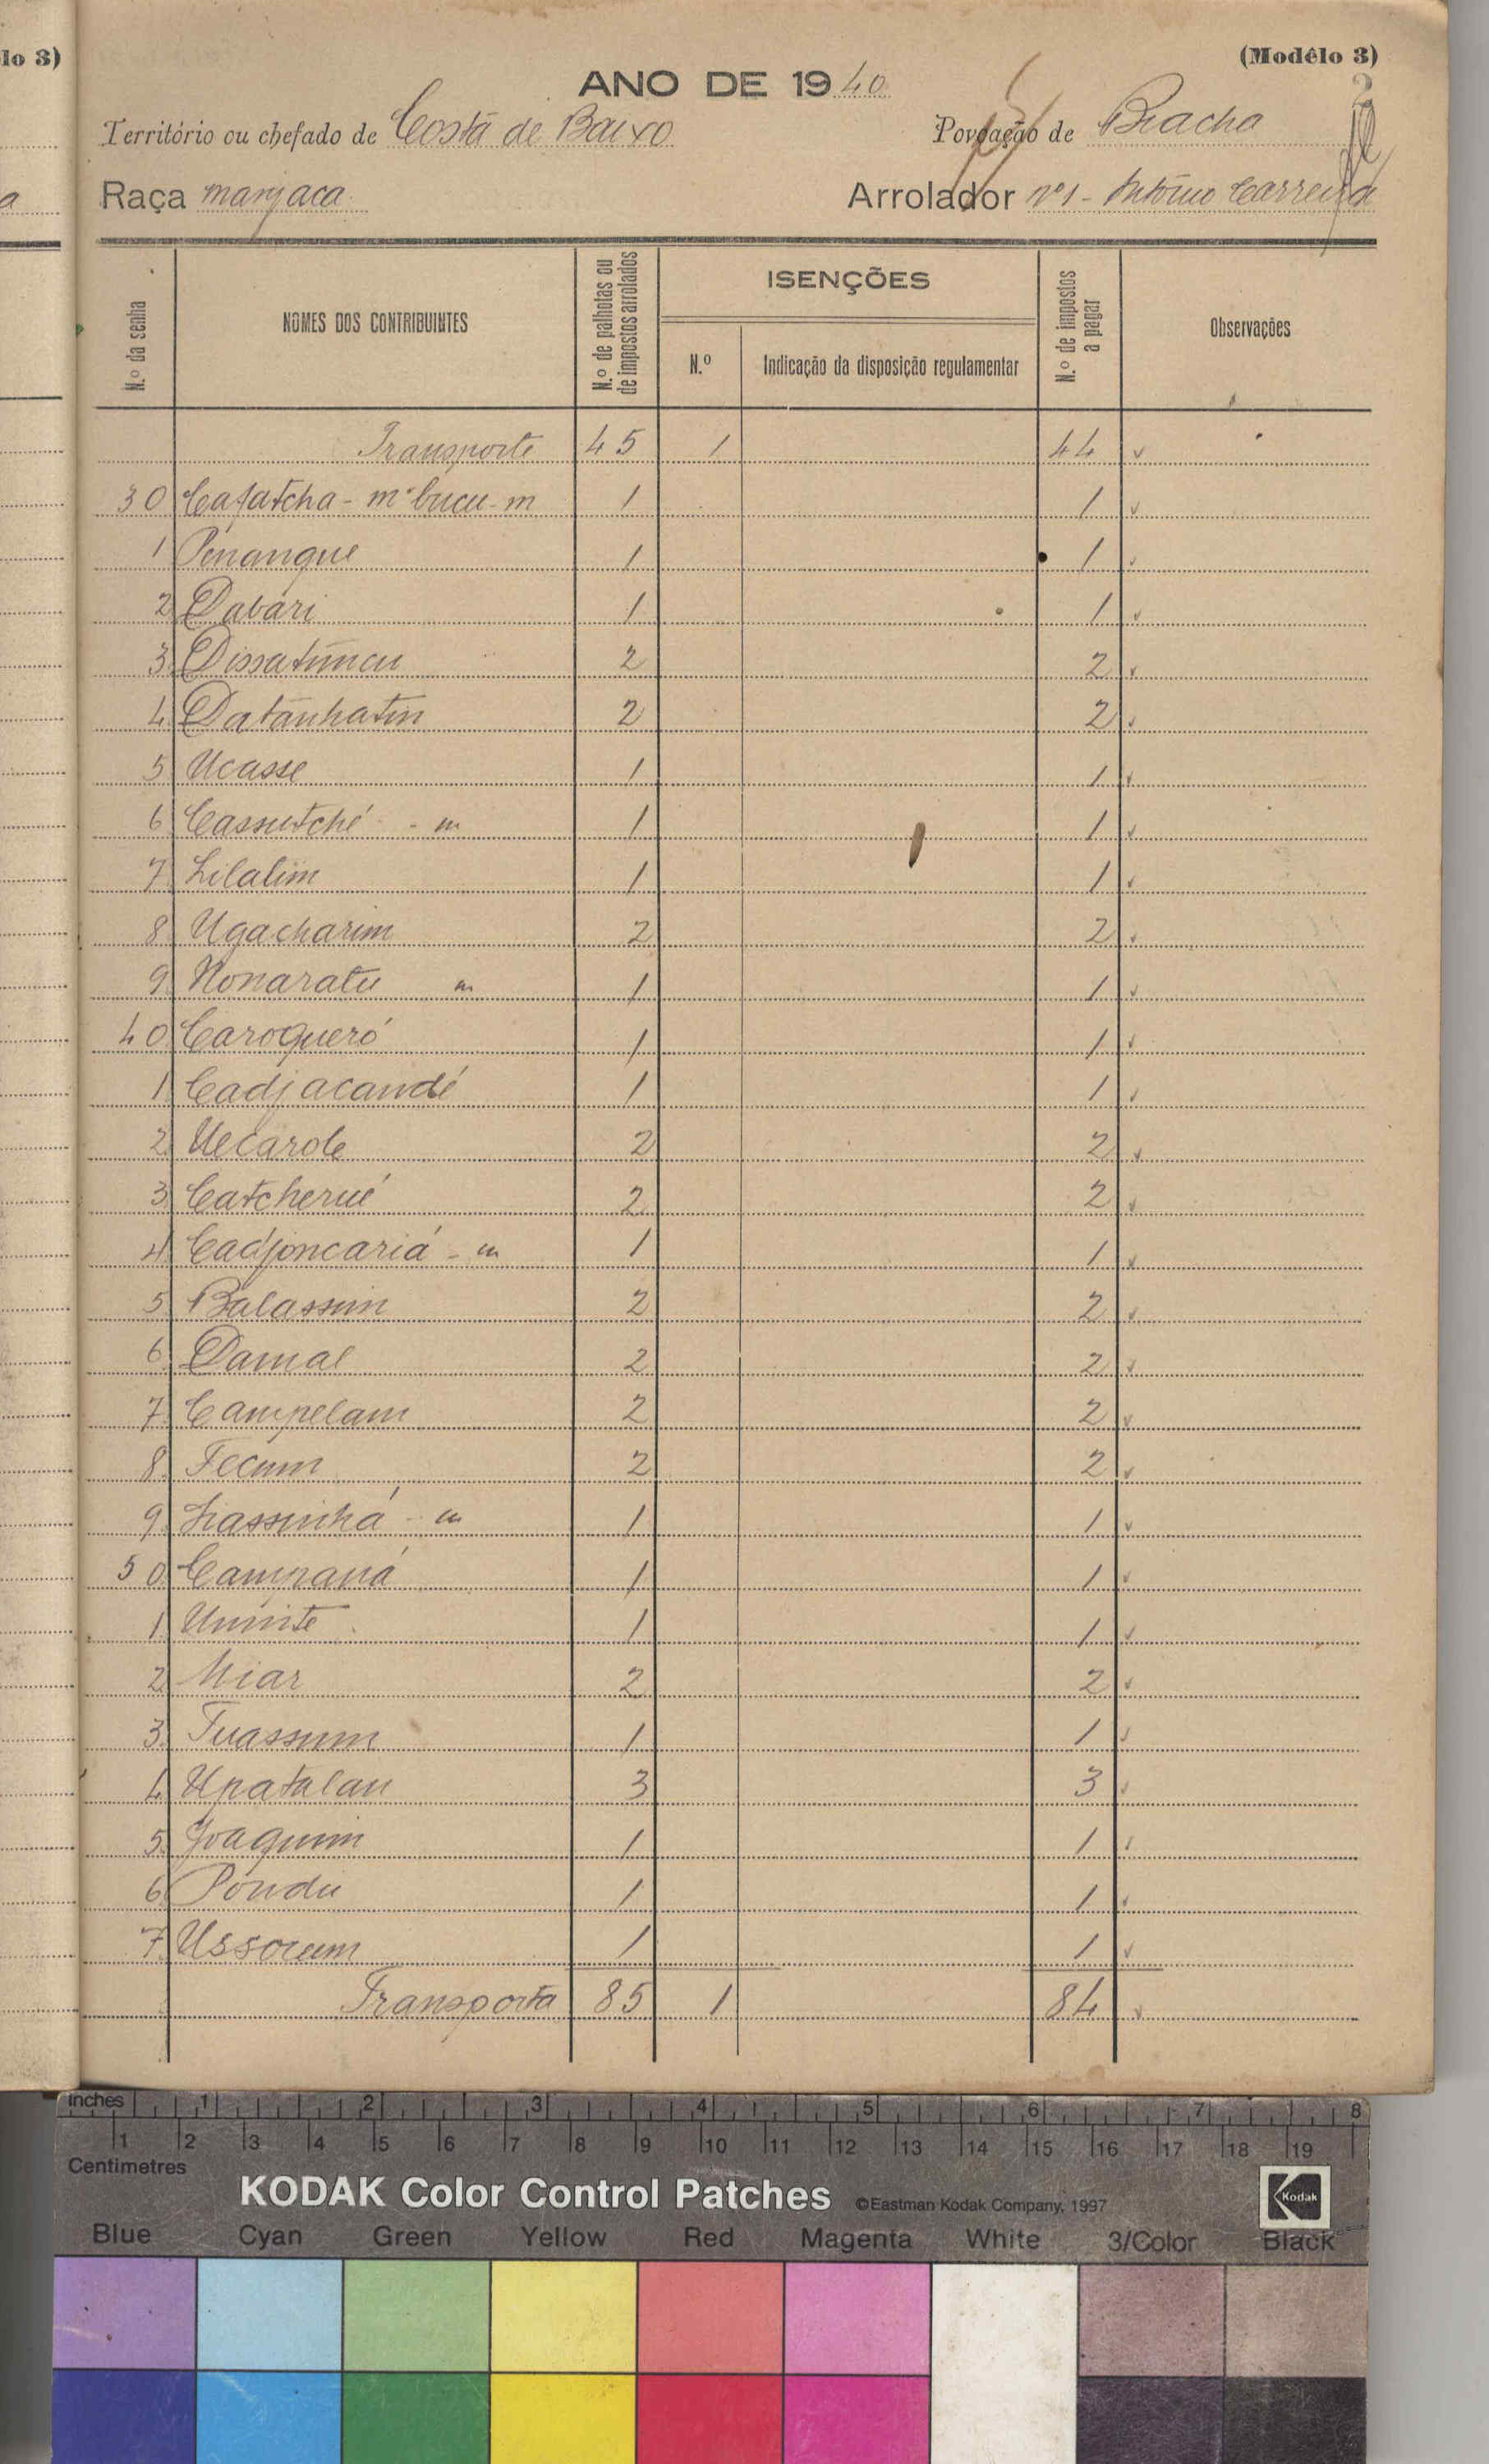 lo 3)
(Modêlo 3)
ANO DE 1940
Território ou chefado de Costa de Baixo
Povoação de Bracha
a
Raça manjaca
Arrolador nº1 - António Carreira
N.º da senha
NOMES DOS CONTRIBUINTES
N.º de palhotas ou de impostos arrolados
ISENÇÕES
N.º
Indicação da disposição regulamentar
N.º de impostos a pagar
Observações
Transporte 45 1 44
30 Cafatcha - m'bucu - m 1 1
1 Penangue 1 1
2 Dabári 1 1
3 Dissatúncu 2 2
4 Datánhatin 2 2
5 Ucasse 1 1
6 Cassutché - m 1 1
7 Lilalim 1 1
8 Ugacharim 2 2
9 Nonaratu m 1 1
40 Caroqueró 1 1
1 Cadjacandé 1 1
2 Uecarole 2 2
3 Catcherué 2 2
4 Cadjoncariá - m 1 1
5 Balassim 2 2
6 Damal 2 2
7 Campelam 2 2
8 Fecum 2 2
9 Liassinhá - m 1 1
50 Campaná 1 1
1 Uminte 1 1
2 Niar 2 2
3 Tuassum 1 1
4 Upatalan 3 3
5 Joaquim 1 1
6 Pondu 1 1
7 Ussoum 1 1
Transporta 85 1 84
Inches 1 2 3 4 5 6 7 8
1 2 3 4 5 6 7 8 9 10 11 12 13 14 15 16 17 18 19
Centimetres
KODAK Color Control Patches ©Eastman Kodak Company, 1997 Kodak
Blue Cyan Green Yellow Red Magenta White 3/Color Black